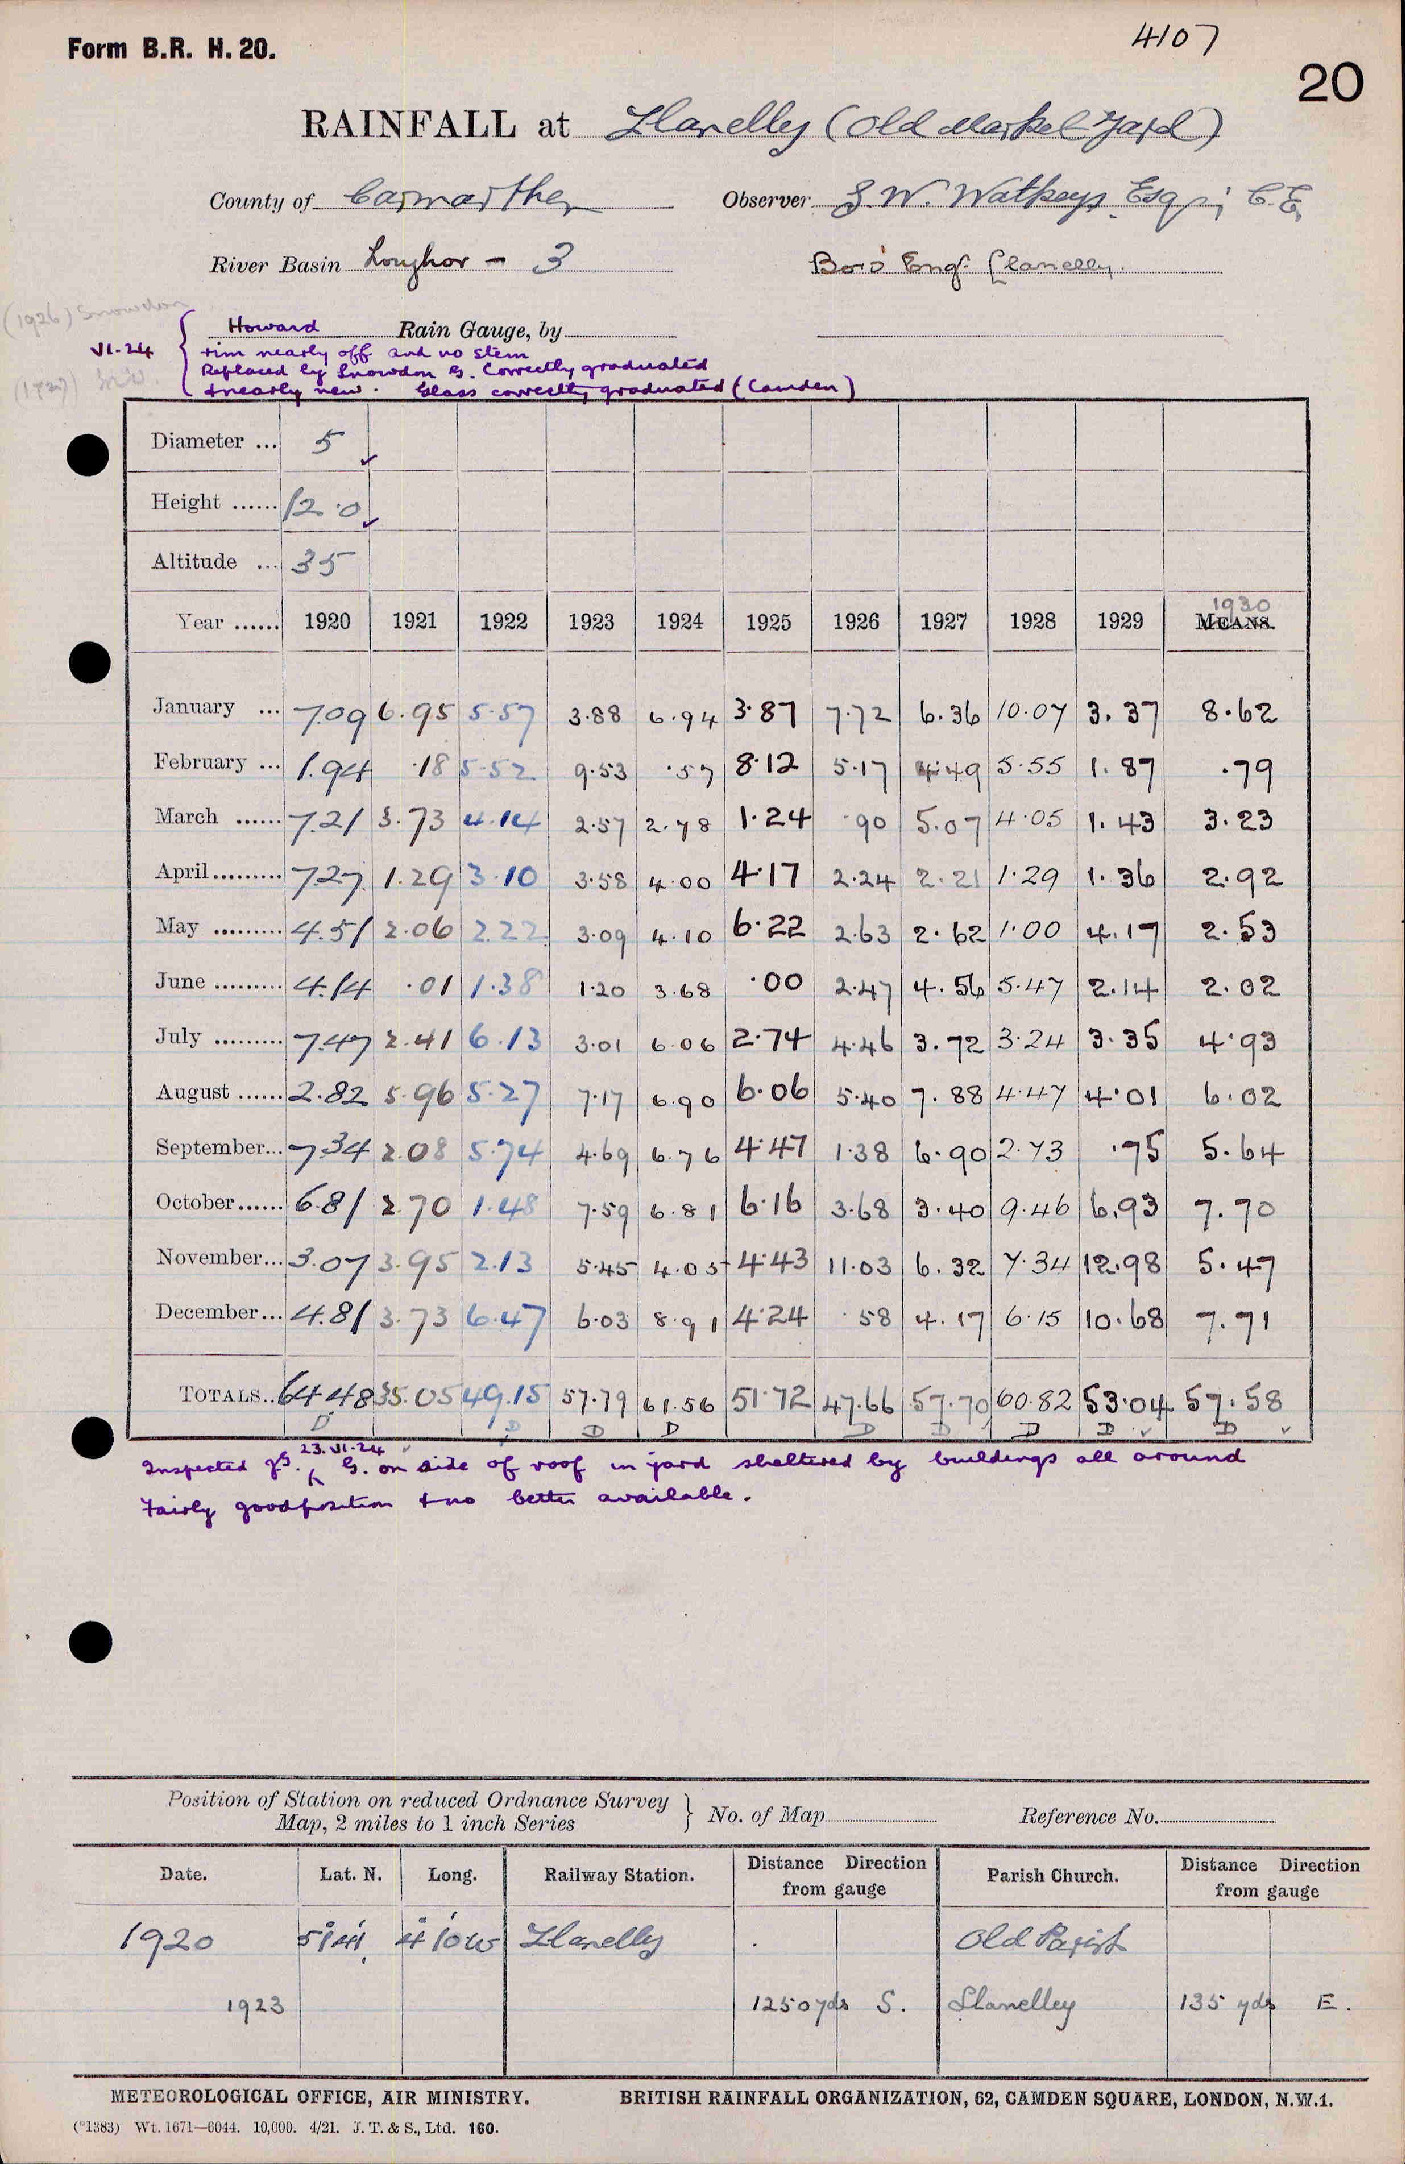 Form B.R. H. 20.
4107
20
RAINFALL at Llanelly (Old Market Yard)
County of Carmarthen Observer G. W. Watkeys, Esqr; C.E,
River Basin Loughor - 3 Boro' Engr. Llanelly.
(1926) Snowdon
Howard Rain Gauge, by
VI.24 rim nearly off and no stem
Replaced by Snowdon G. Correctly graduated
(1927)
& nearly new. Glass correctly graduated (Camden)
Diameter ... 5
Height ...... 12.0
Altitude ... 35
Year ...... 1920 1921 1922 1923 1924 1925 1926 1927 1928 1929 MEANS. 1930
January ... 7.09 6.95 5.57 3.88 6.94 3.87 7.72 6.36 10.07 3.37 8.62
February ... 1.94 .18 5.52 9.53 .57 8.12 5.17 4.49 5.55 1.87 .79
March ...... 7.21 3.73 4.14 2.57 2.78 1.24 .90 5.07 4.05 1.43 3.23
April ......... 7.27 1.29 3.10 3.58 4.00 4.17 2.24 2.21 1.29 1.36 2.92
May ......... 4.51 2.06 2.22 3.09 4.10 6.22 2.63 2.62 1.00 4.17 2.53
June ......... 4.14 .01 1.38 1.20 3.68 .00 2.47 4.56 5.47 2.14 2.02
July ......... 7.47 2.41 6.13 3.01 6.06 2.74 4.46 3.72 3.24 3.35 4.93
August ...... 2.82 5.96 5.27 7.17 6.90 6.06 5.40 7.88 4.47 4.01 6.02
September... 7.34 2.08 5.74 4.69 6.76 4.47 1.38 6.90 2.73 .75 5.64
October...... 6.81 2.70 1.48 7.59 6.81 6.16 3.68 3.40 9.46 6.93 7.70
November... 3.07 3.95 2.13 5.45 4.05 4.43 11.03 6.32 7.34 12.98 5.47
December... 4.81 3.73 6.47 6.03 8.91 4.24 .58 4.17 6.15 10.68 7.71
TOTALS.. 64.48 35.05 49.15 57.79 61.56 51.72 47.66 57.70 60.82 53.04 57.58
D D D D D D D D D
23.VI.24
Inspected G. on side of roof in yard sheltered by buildings all around
Fairly good position & no better available.
Position of Station on reduced Ordnance Survey
Map, 2 miles to 1 inch Series } No. of Map Reference No.
Date. Lat. N. Long. Railway Station. Distance from gauge Direction Parish Church. Distance from gauge Direction
1920 51° 41' 4° 10' W Llanelly Old Parish
1923 1250 yds S. Llanelley 135 yds E.
METEOROLOGICAL OFFICE, AIR MINISTRY. BRITISH RAINFALL ORGANIZATION, 62, CAMDEN SQUARE, LONDON, N.W.1.
(*1383) Wt. 1671—6044. 10,000. 4/21. J. T. & S., Ltd. 160.